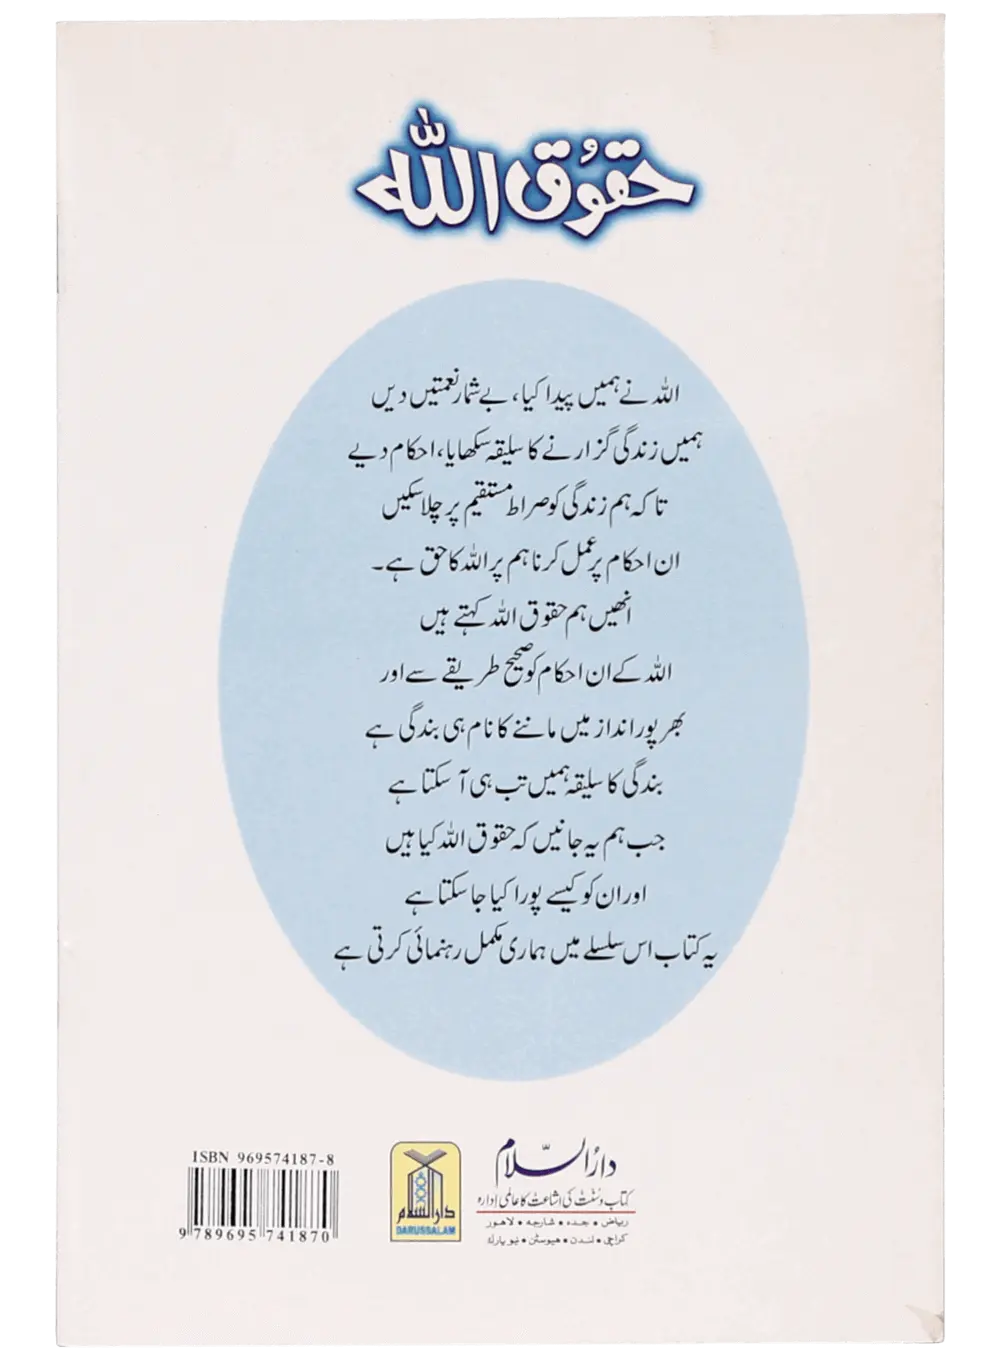 حقوق اللہ
اللہ نے ہمیں پیدا کیا، بے شمار نعمتیں دیں
ہمیں زندگی گزارنے کا سلیقہ سکھایا، احکام دیے
تاکہ ہم زندگی کو صراط مستقیم پر چلا سکیں
ان احکام پر عمل کرنا ہم پر اللہ کا حق ہے۔
انھیں ہم حقوق اللہ کہتے ہیں
اللہ کے ان احکام کو صحیح طریقے سے اور
بھرپور انداز میں ماننے کا نام ہی بندگی ہے
بندگی کا سلیقہ ہمیں تب ہی آ سکتا ہے
جب ہم یہ جانیں کہ حقوق اللہ کیا ہیں
اور ان کو کیسے پورا کیا جا سکتا ہے
یہ کتاب اس سلسلے میں ہماری مکمل رہنمائی کرتی ہے
دارُالسّلام
کتاب و سُنّت کی اشاعت کا عالمی اِدارہ
ریاض • جدہ • شارجہ • لاہور
کراچی • لندن • ہیوسٹن • نیو یارک
دارالسلام
DARUSSALAM
ISBN 969574187-8
9 789695 741870